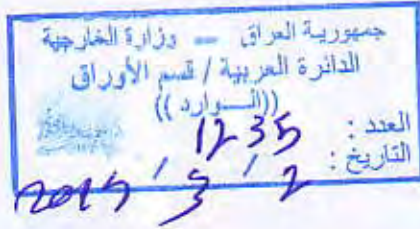 جمهورية العراق ــ وزارة الخارجية
الدائرة العربية / قسم الأوراق
((الـــوارد ))
العدد : 1235
التاريخ : 2 / 3 /